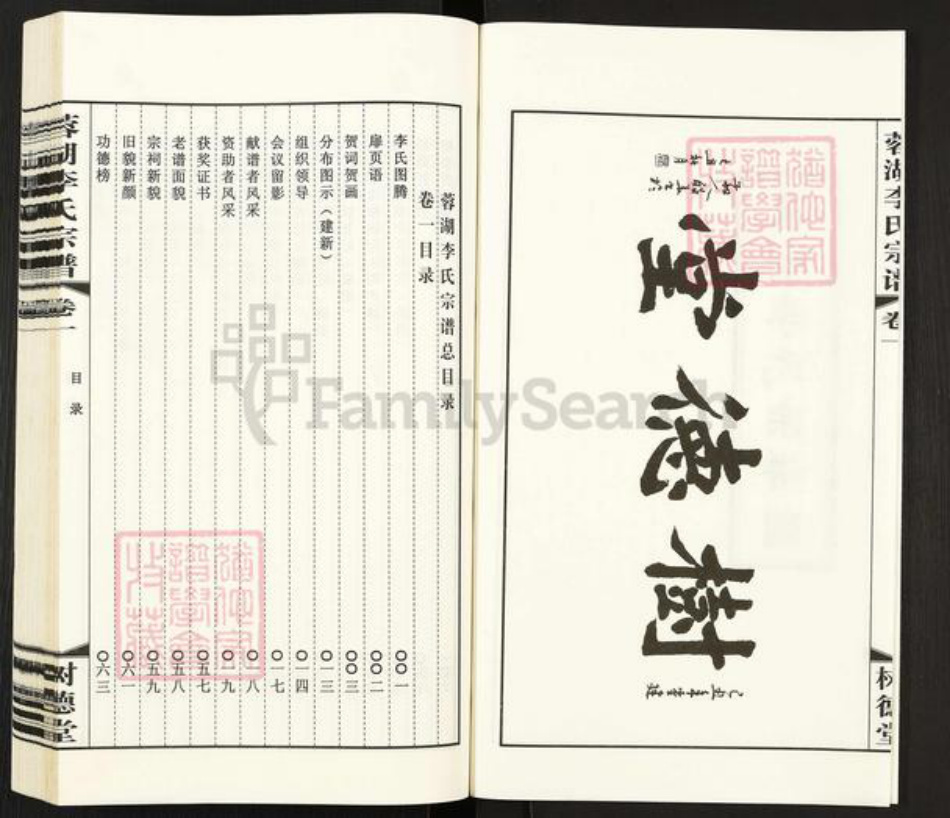 蓉湖李氏宗谱 卷
树德堂
樹德堂
蓉湖李氏宗谱总目录
卷一目录
李氏图腾 〇〇一
扉页语 〇〇二
贺词贺画 〇〇三
分布图示（建新） 〇一三
组织领导 〇一四
会议留影 〇一七
献谱者风采 〇一八
资助者风采 〇一九
获奖证书 〇五七
老谱面貌 〇五八
宗祠新貌 〇五九
旧貌新颜 〇六一
功德榜 〇六三
蓉湖李氏宗谱 卷一
目录
树德堂
FamilySearch